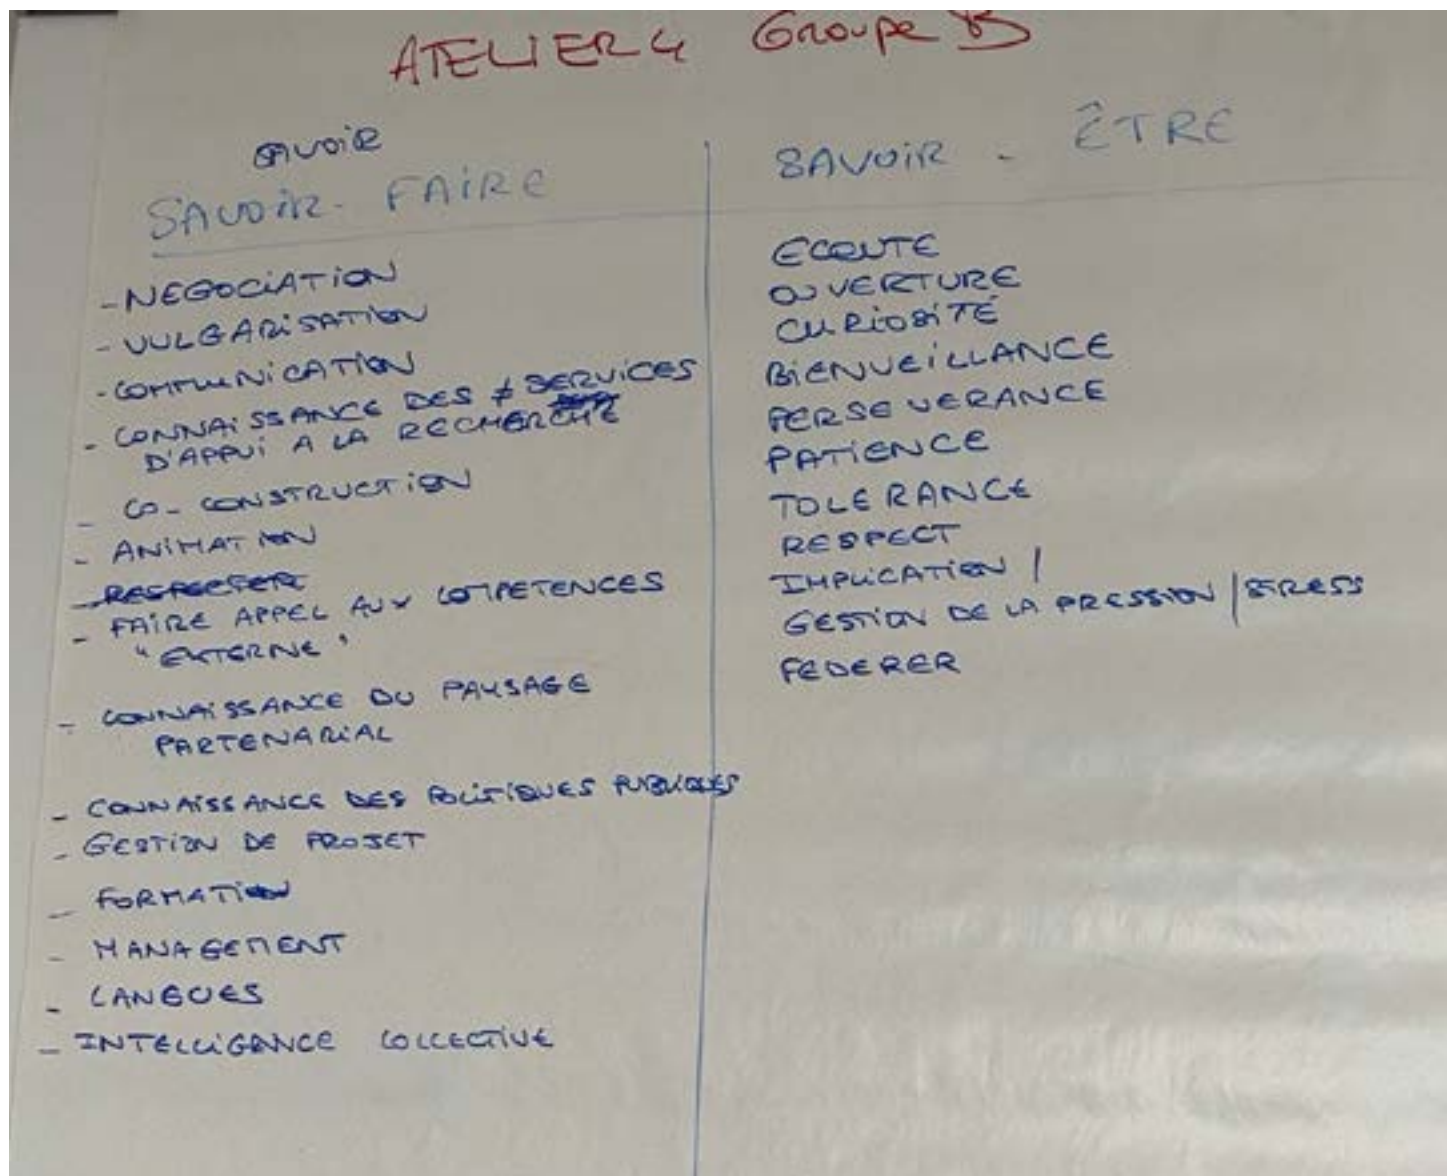 ATELIER 4 Groupe B
SAVOIR
SAVOIR - FAIRE
- NEGOCIATION
- VULGARISATION
- COMMUNICATION
- CONNAISSANCE DES ≠ SERVICES
D'APPUI A LA RECHERCHE
- CO-CONSTRUCTION
- ANIMATION
- RESPECTER
- FAIRE APPEL AUX COMPETENCES
"EXTERNE"
- CONNAISSANCE DU PAYSAGE
PARTENARIAL
- CONNAISSANCE DES POLITIQUES PUBLIQUES
- GESTION DE PROJET
- FORMATION
- MANAGEMENT
- LANGUES
- INTELLIGENCE COLLECTIVE
SAVOIR - ÊTRE
ECOUTE
OUVERTURE
CURIOSITÉ
BIENVEILLANCE
PERSEVERANCE
PATIENCE
TOLERANCE
RESPECT
IMPLICATION /
GESTION DE LA PRESSION / STRESS
FEDERER